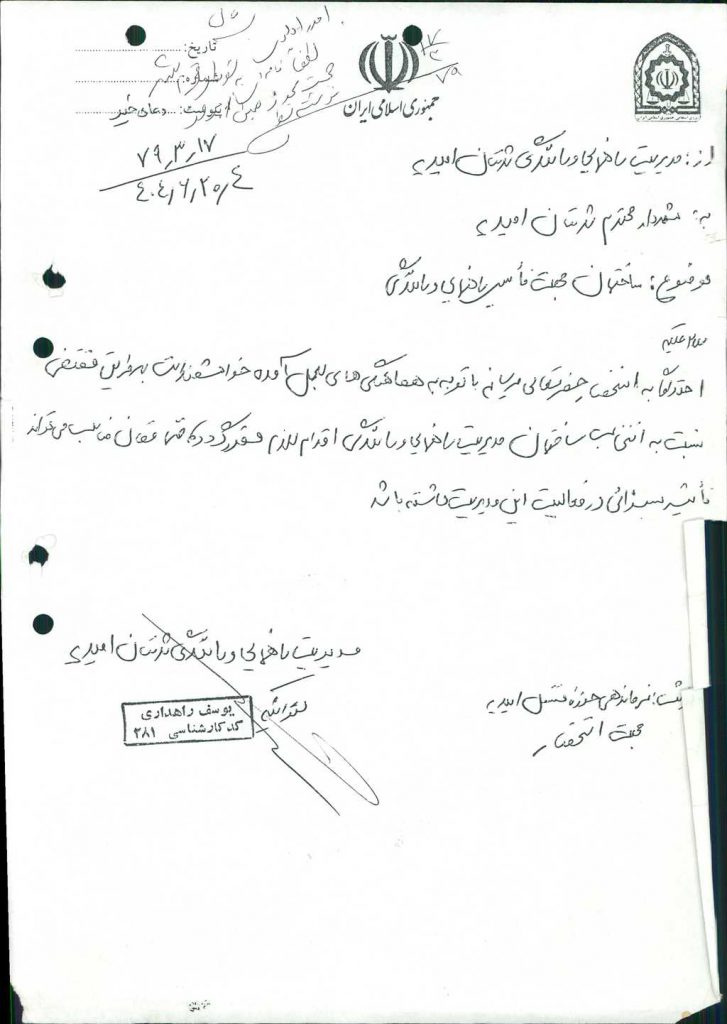 تاریخ:
۷۹٫۳٫۱۷
شماره:
۴۰۴٫۶٫۲۰٫۴
پیوست:
جمهوری اسلامی ایران
۱۷
۳
۷۹
از: مدیریت راهنمایی و رانندگی شهرستان امیدیه
به: شهردار محترم شهرستان امیدیه
موضوع: ساختمان جهت تأسیس راهنمایی و رانندگی
سلام علیکم
احتراماً به استحضار حضرتعالی میرساند با توجه به هماهنگی های بعمل آمده خواهشمند است بهر طریق مقتضی
نسبت به انتخاب ساختمان مدیریت راهنمایی و رانندگی اقدام لازم مقرر گردد که قطعاً مکان مناسب می تواند
تأثیر بسزائی در فعالیت این مدیریت داشته باشد
مدیریت راهنمایی و رانندگی شهرستان امیدیه
یوسف راهداری
کد کارشناسی ۲۸۱
فرماندهی حوزه امیدیه
جهت استحضار